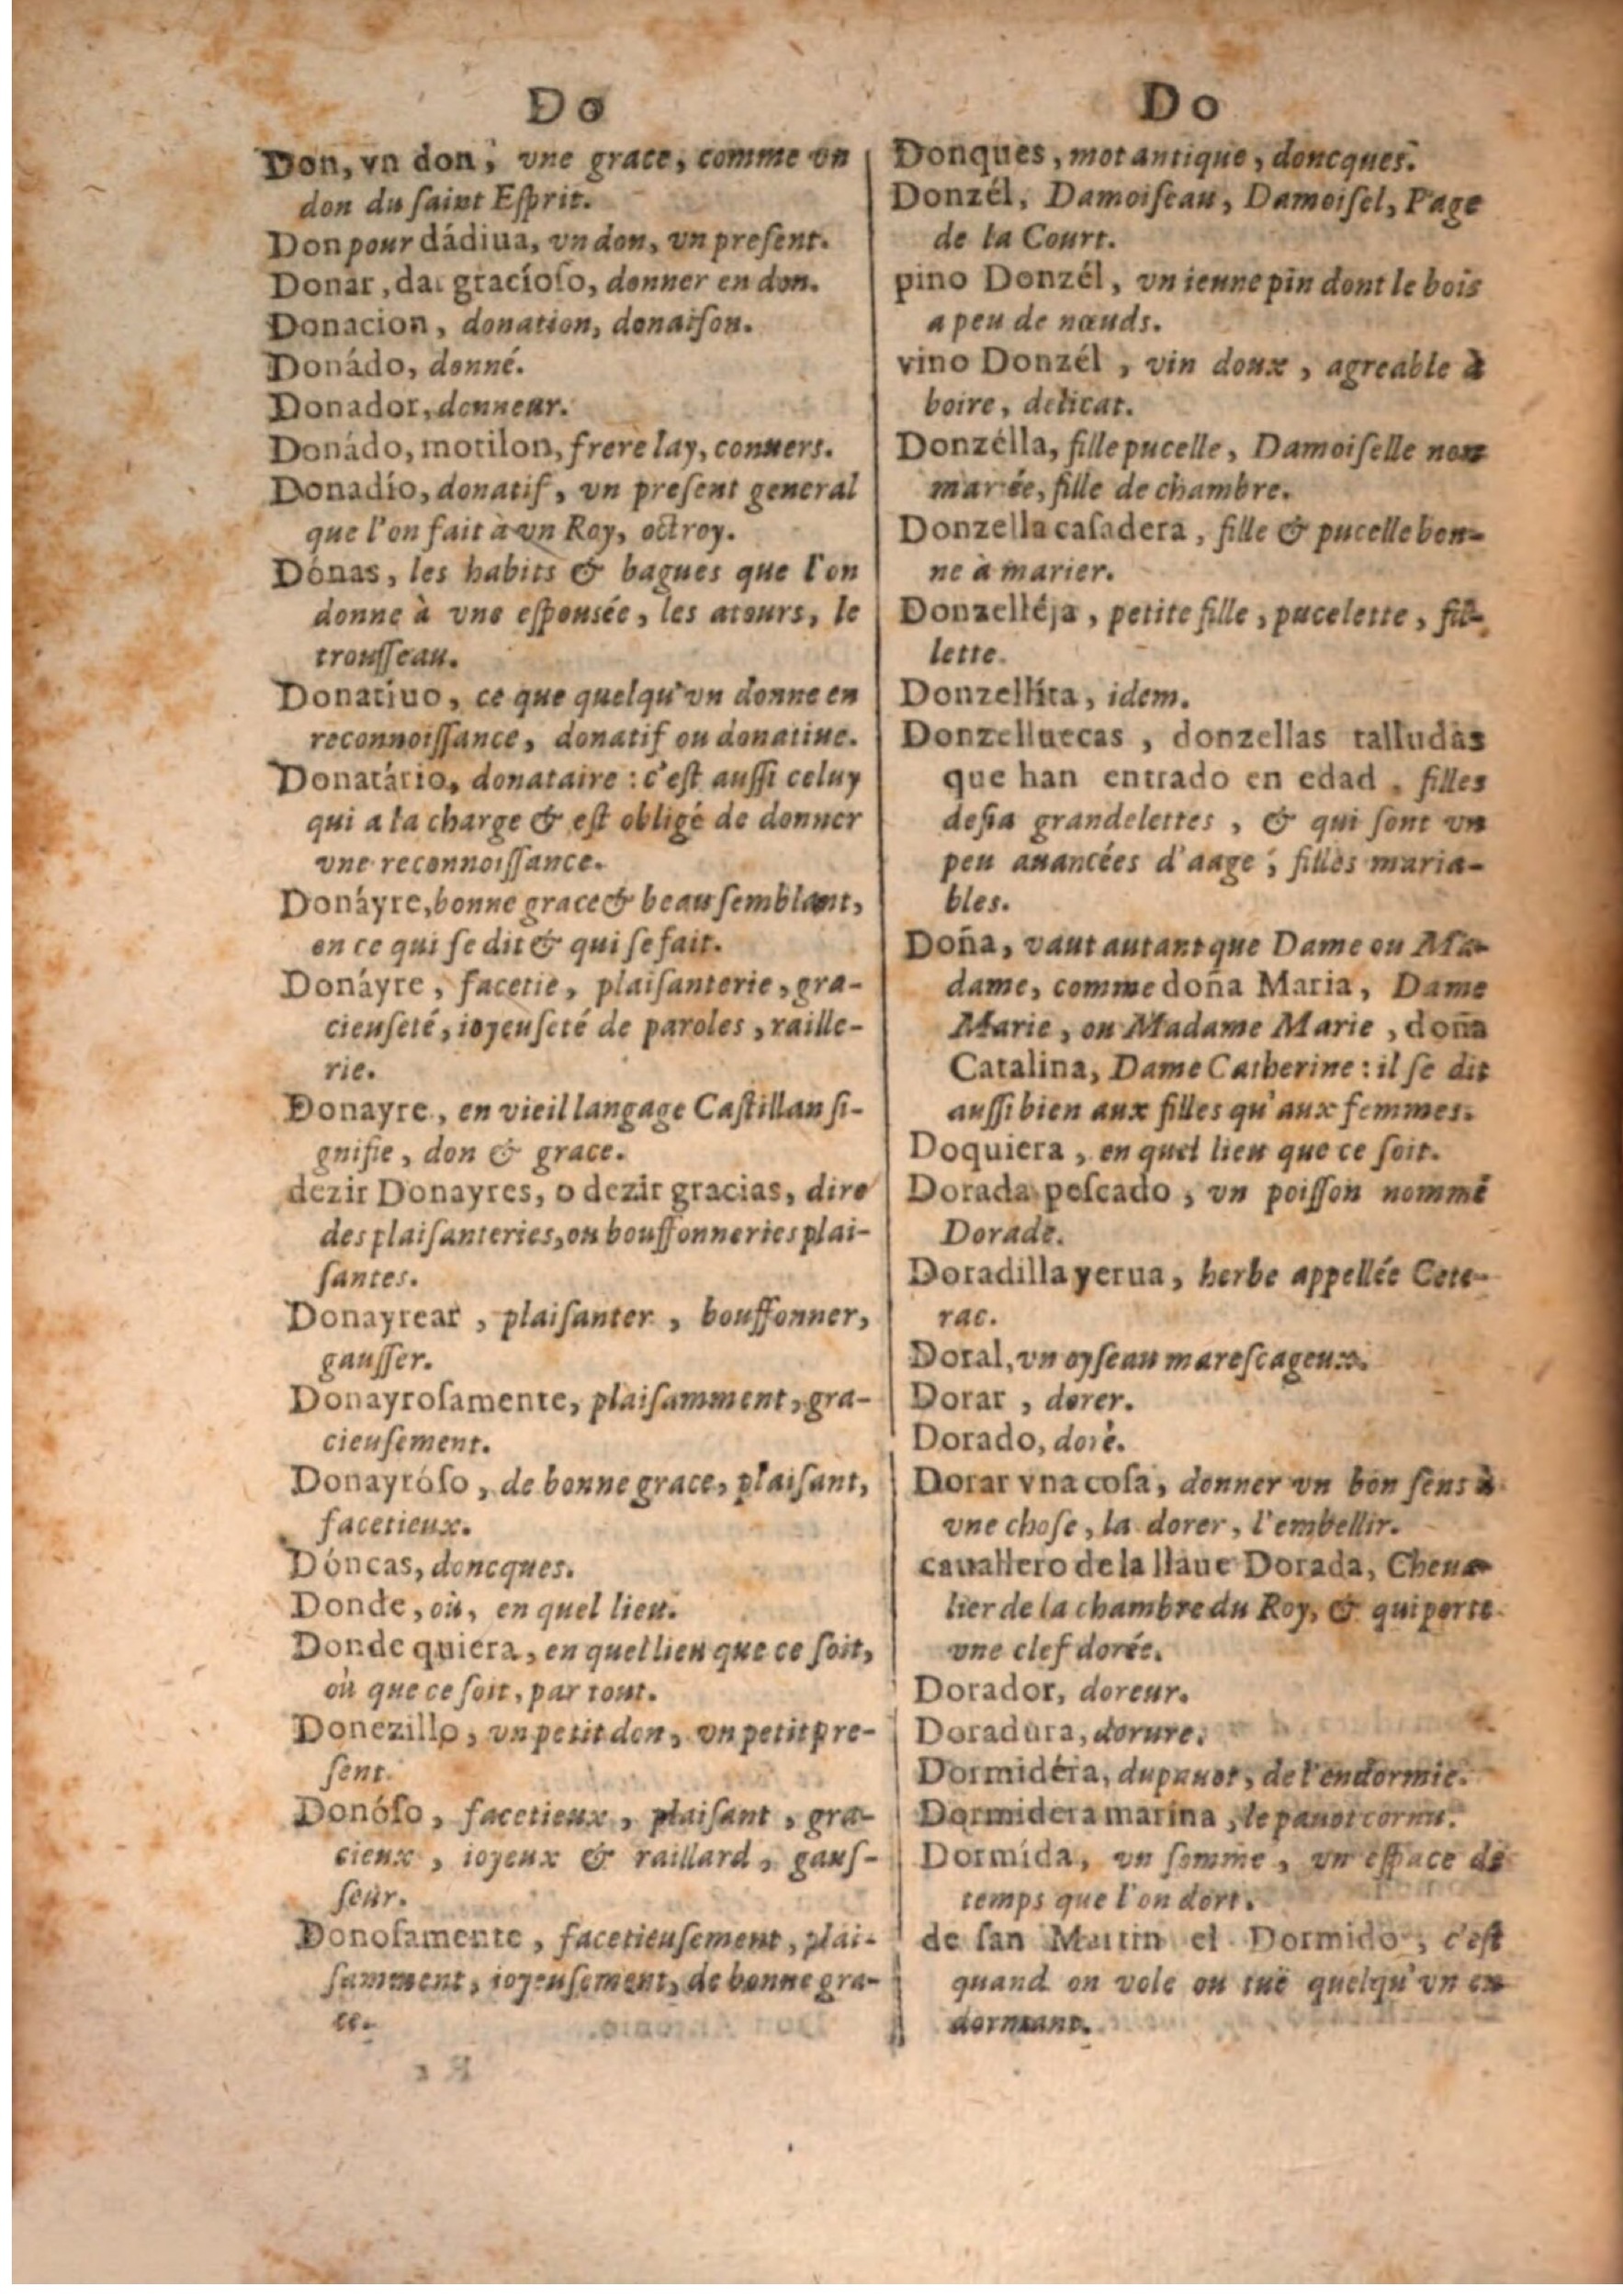 Do
Don, vn don, vne grace, comme vn
don du ſaint Eſprit.
Don pour dádiua, vn don, vn preſent.
Donar, dar gracíoſo, donner en don.
Donacion, donation, donaiſon.
Donádo, donné.
Donador, donneur.
Donádo, motilon, frere lay, conuers.
Donadío, donatif, vn preſent general
que l'on fait à vn Roy, octroy.
Dónas, les habits & bagues que l'on
donne à vne eſpouſée, les atours, le
trouſſeau.
Donatiuo, ce que quelqu'vn donne en
reconnoiſſance, donatif ou donatiue.
Donatário, donataire : c'eſt auſſi celuy
qui a la charge & eſt obligé de donner
vne reconnoiſſance.
Donáyre, bonne grace & beau ſemblant,
en ce qui ſe dit & qui ſe fait.
Donáyre, facetie, plaiſanterie, gra-
cieuſeté, ioyeuſeté de paroles, raille-
rie.
Donayre, en vieil langage Caſtillan ſi-
gnifie, don & grace.
dezir Donayres, o dezir gracias, dire
des plaiſanteries, ou bouffonneries plai-
ſantes.
Donayrear, plaiſanter, bouffonner,
gauſſer.
Donayroſamente, plaiſamment, gra-
cieuſement.
Donayróſo, de bonne grace, plaiſant,
facetieux.
Dóncas, doncques.
Donde, où, en quel lieu.
Donde quiera, en quel lieu que ce ſoit,
où que ce ſoit, par tout.
Donezillo, vn petit don, vn petit pre-
ſent.
Donóſo, facetieux, plaiſant, gra-
cieux, ioyeux & raillard, gauſ-
ſeur.
Donoſamente, facetieuſement, plai-
ſamment, ioyeuſement, de bonne gra-
ce.
Do
Donques, mot antique, doncques.
Donzél, Damoiſeau, Damoiſel, Page
de la Court.
pino Donzél, vn ieune pin dont le bois
a peu de nœuds.
vino Donzél, vin doux, agreable à
boire, delicat.
Donzélla, fille pucelle, Damoiſelle non
mariée, fille de chambre.
Donzella caſadera, fille & pucelle bon-
ne à marier.
Donzelléja, petite fille, pucelette, fil-
lette.
Donzellíta, idem.
Donzelluecas, donzellas talludas
que han entrado en edad, filles
deſia grandelettes, & qui ſont vn
peu auancées d'aage, filles maria-
bles.
Doña, vaut autant que Dame ou Ma-
dame, comme doña Maria, Dame
Marie, ou Madame Marie, doña
Catalina, Dame Catherine : il ſe dit
auſſi bien aux filles qu'aux femmes.
Doquiera, en quel lieu que ce ſoit.
Dorada peſcado, vn poiſſon nommé
Dorade.
Doradilla yerua, herbe appellée Cete-
rac.
Doral, vn oyſeau mareſcageux.
Dorar, dorer.
Dorado, doré.
Dorar vna coſa, donner vn bon ſens à
vne choſe, la dorer, l'embellir.
cauallero de la llaue Dorada, Cheua-
lier de la chambre du Roy, & qui porte
vne clef dorée.
Dorador, doreur.
Doradura, dorure.
Dormidéra, du pauot, de l'endormie.
Dormidera marina, le pauot cornu.
Dormída, vn ſomme, vn eſpace de
temps que l'on dort.
de ſan Martin el Dormido, c'eſt
quand on vole ou tuë quelqu'vn en
dormant.